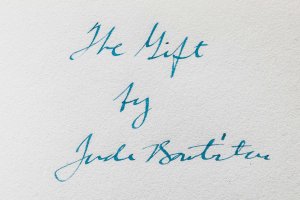 The Gift
by
Jude